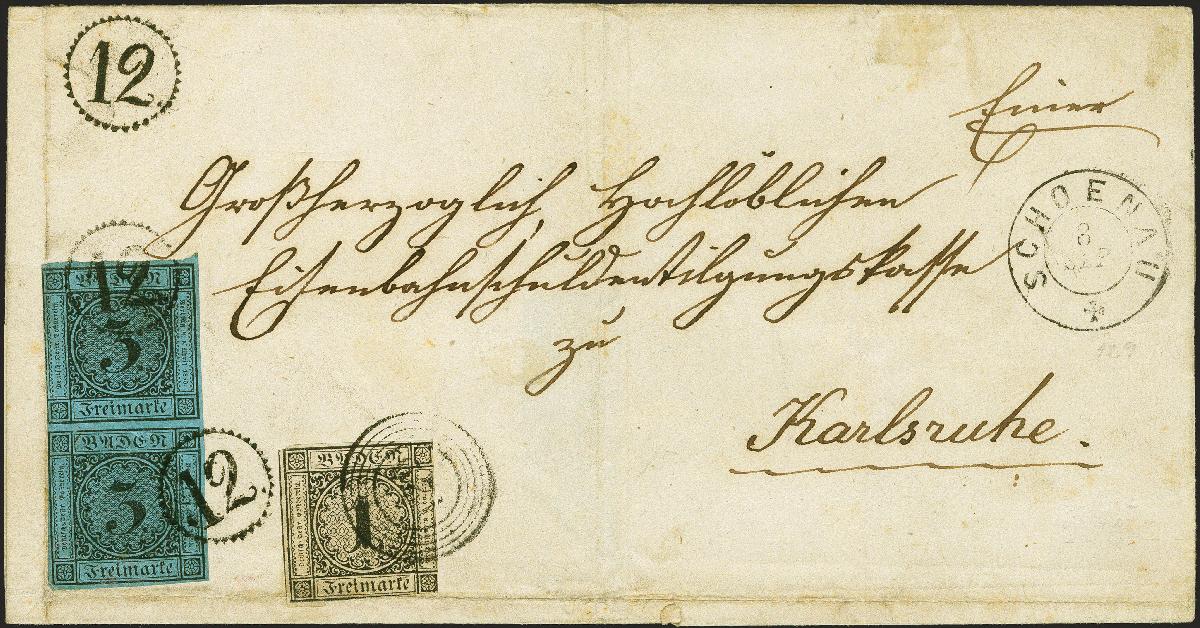 12
Einer
Großherzoglich Hochlöblichen
Eisenbahnschuldentilgungskasse
zu
Karlsruhe.
SCHOENAU
8
SEP
129
12
BADEN
3
Freimarke
BADEN
3
Freimarke
12
BADEN
1
Freimarke